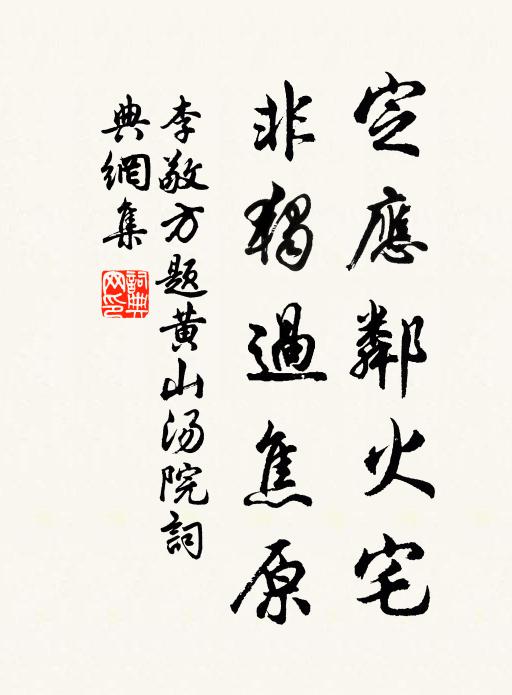 定應鄰火宅
非獨過焦原
李敬方题黄山汤院詞
典網集
詞典
网印